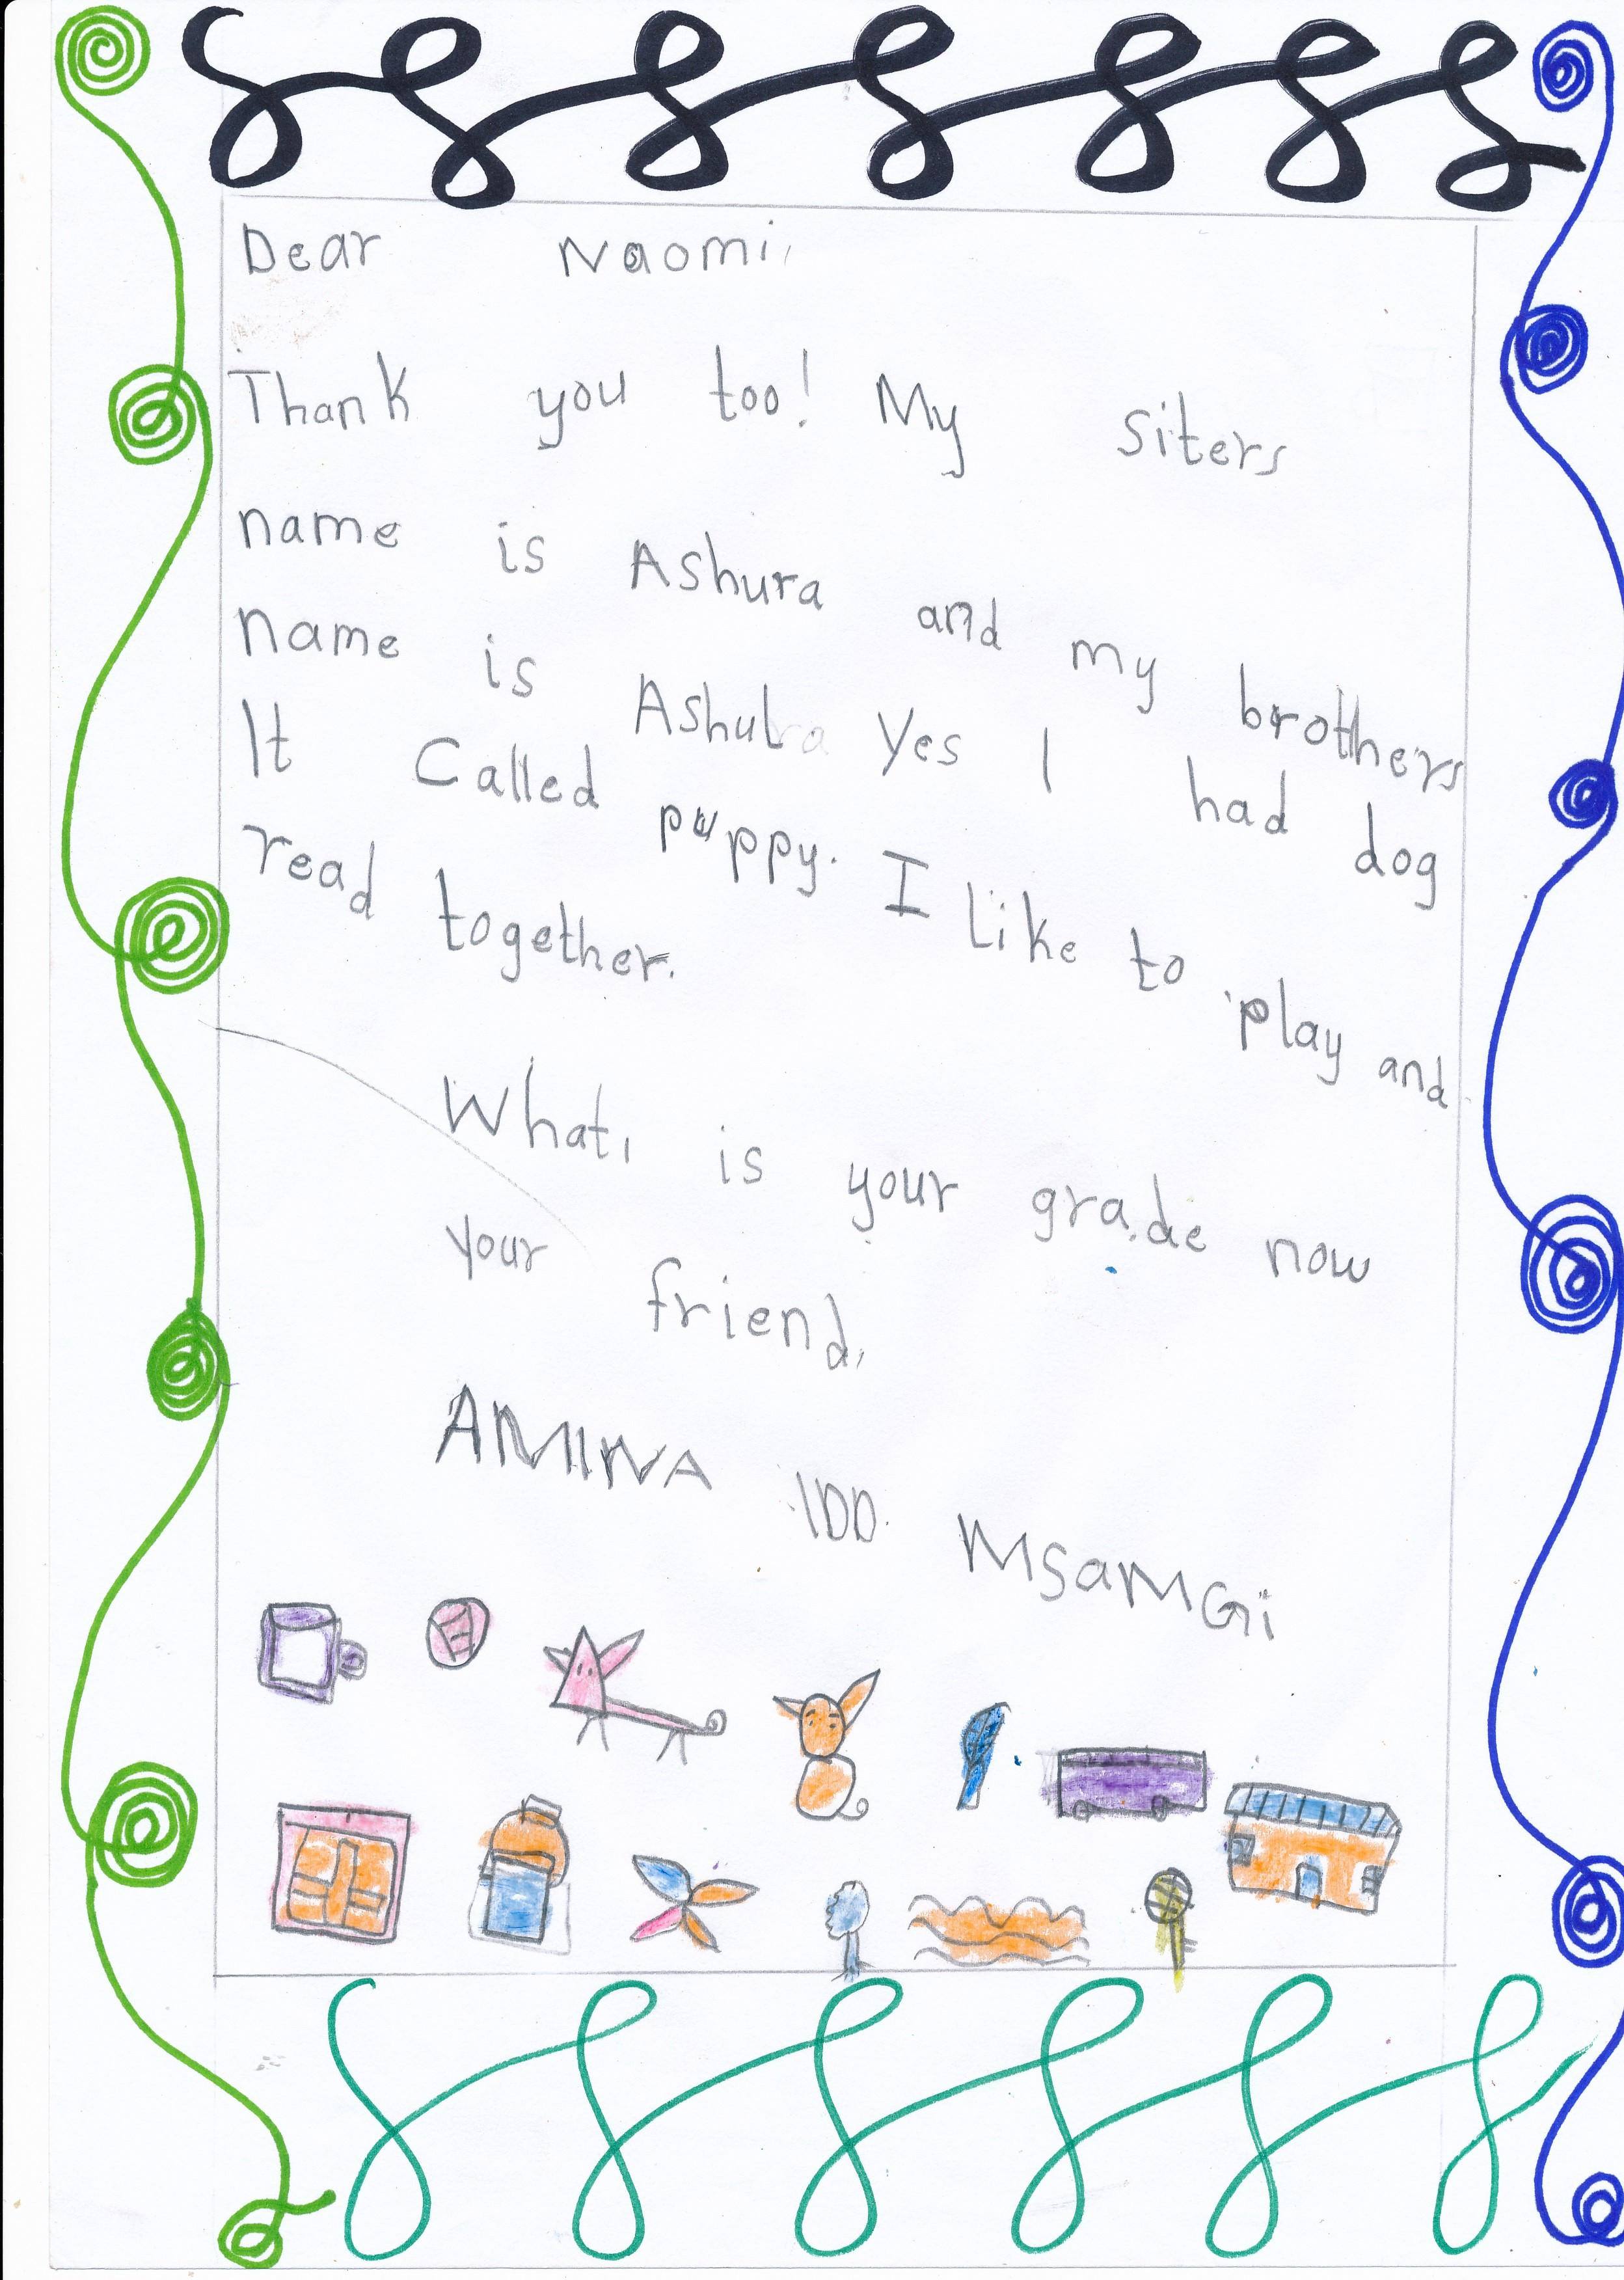 Dear Naomi,
Thank you too! My siters
name is Ashura and my brothers
name is Ashul Yes I had dog
It Called puppy. I like to play and
read together.
What, is your grade now
your friend,
AMINA IDD MsaMGi